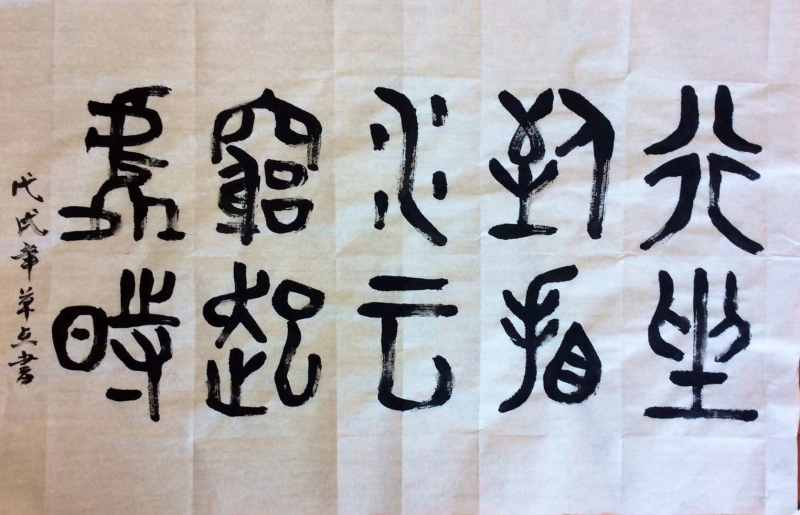 行到水窮處
坐看云起時
戊戌書